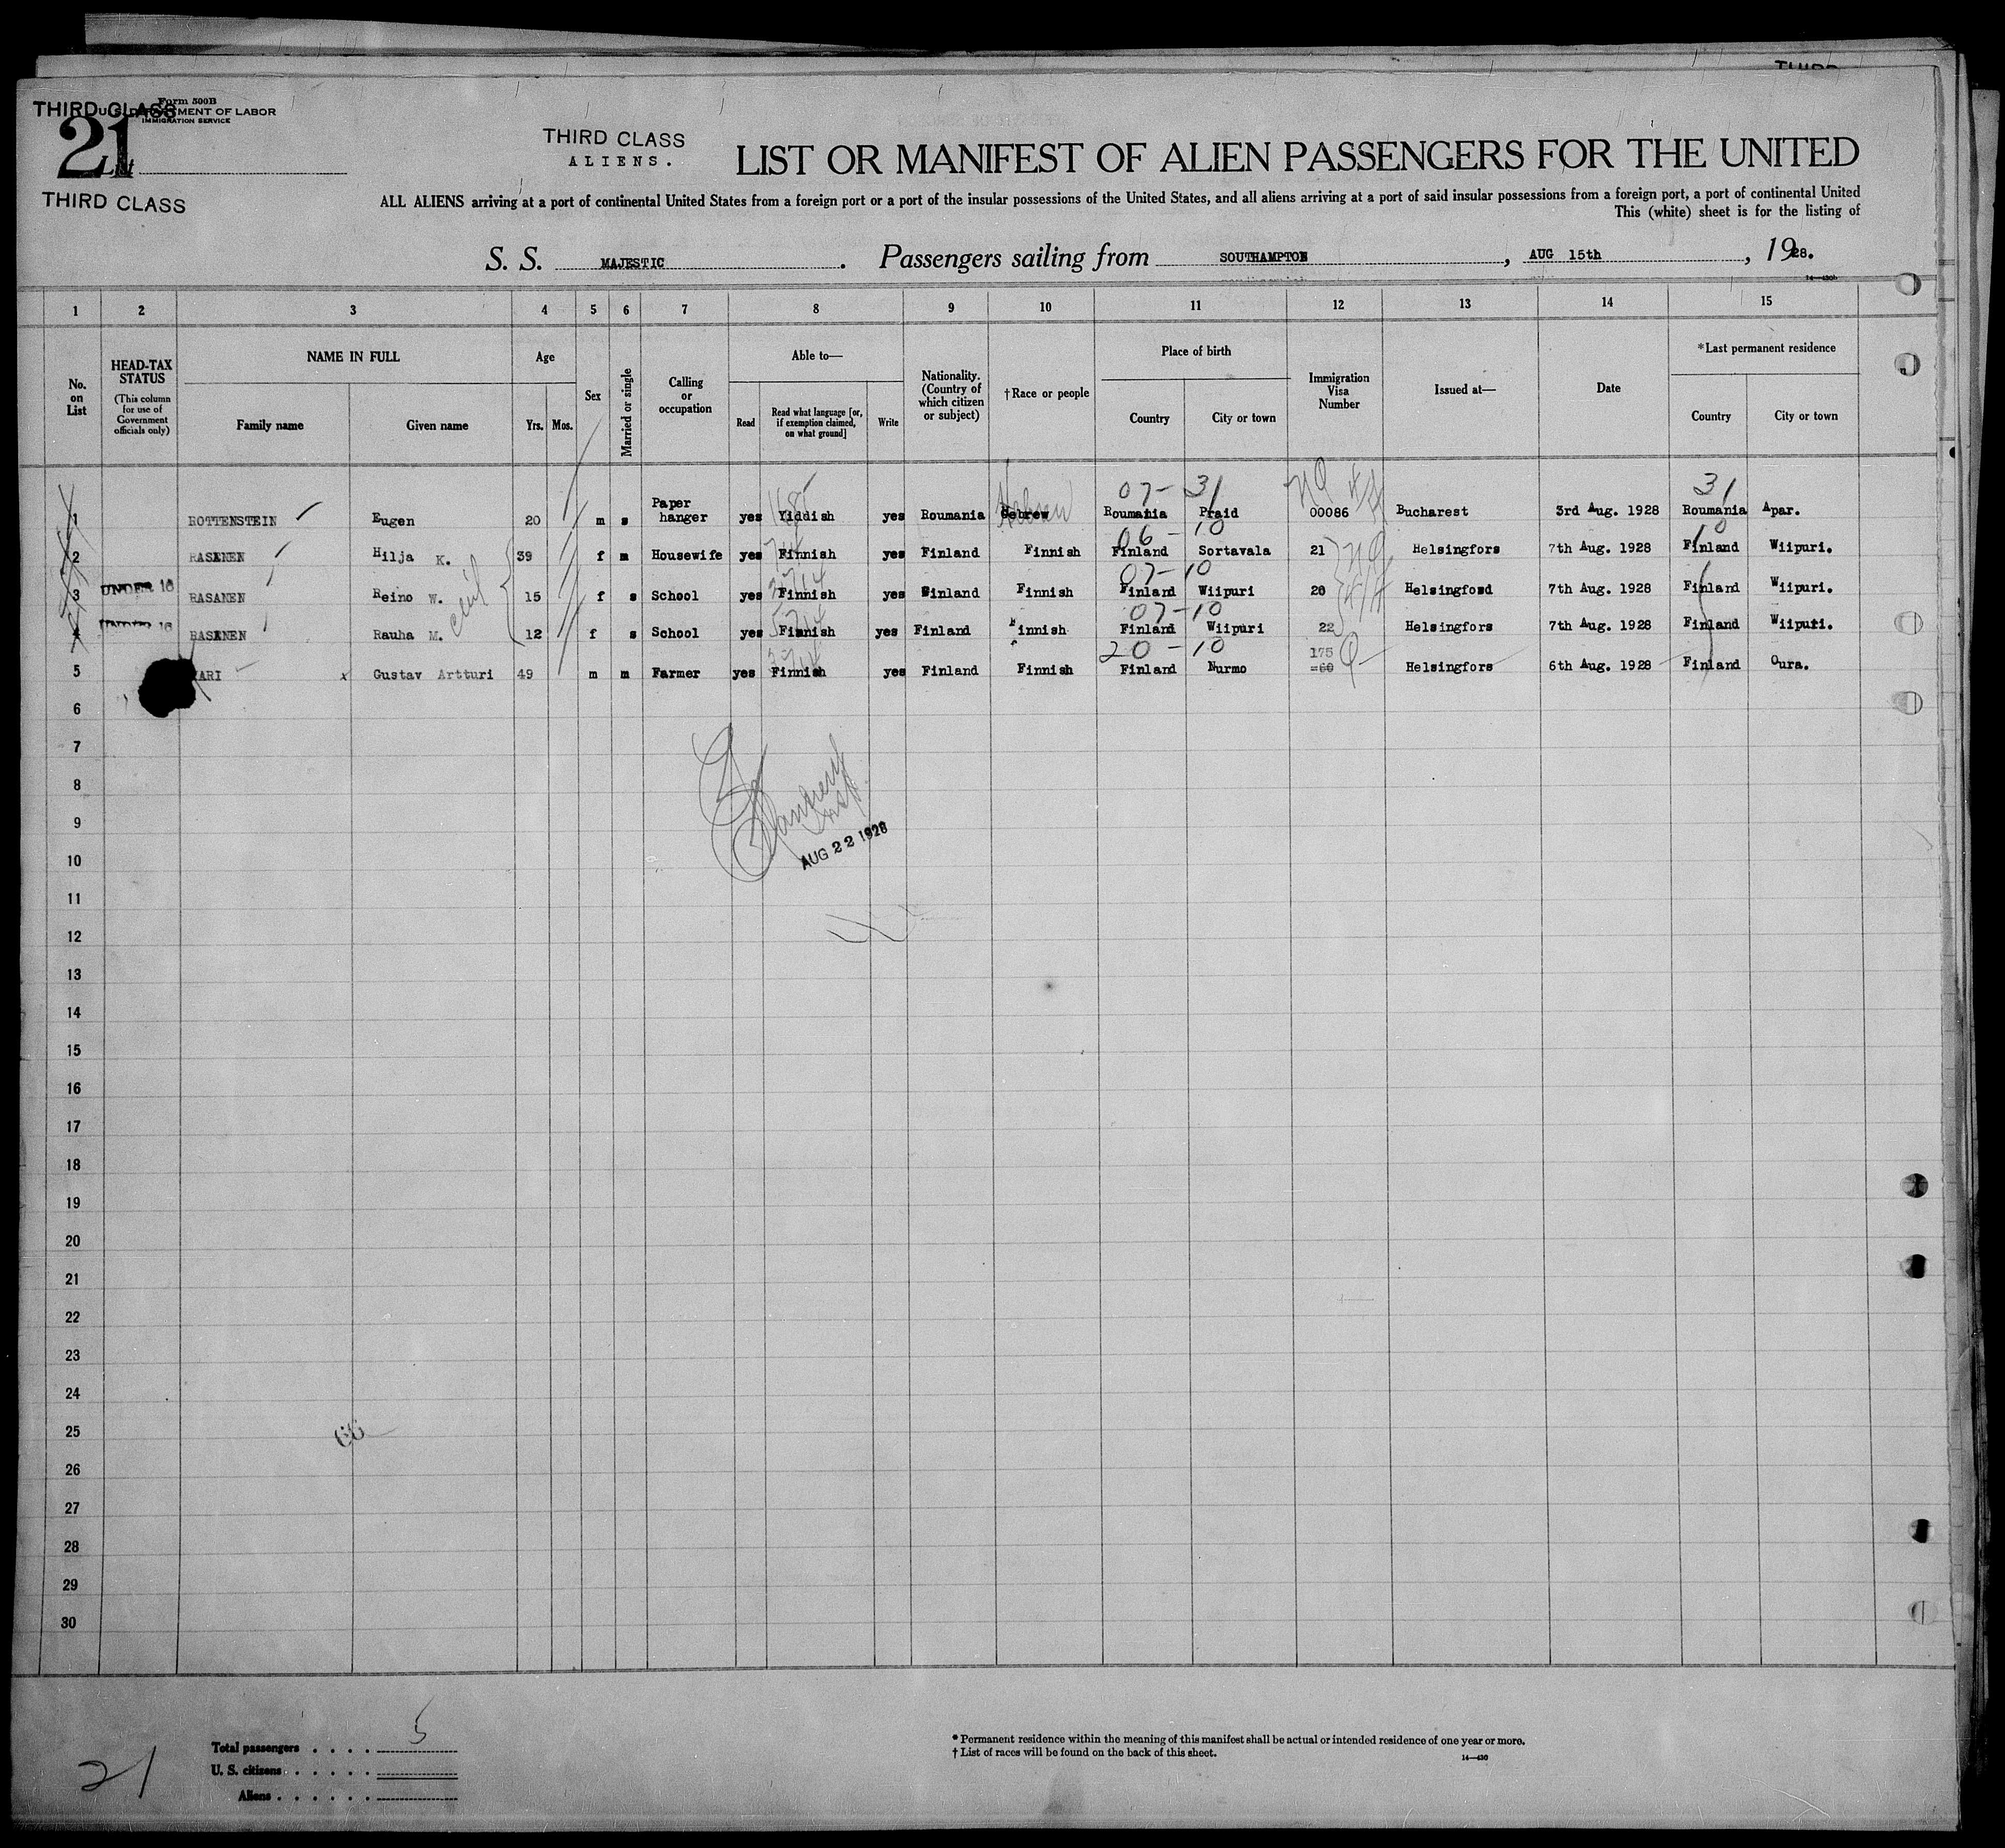 THIRD
THIRD CLASS
Form 500B
U. S. DEPARTMENT OF LABOR
IMMIGRATION SERVICE
21
List
THIRD CLASS
THIRD CLASS
ALIENS.
LIST OR MANIFEST OF ALIEN PASSENGERS FOR THE UNITED
ALL ALIENS arriving at a port of continental United States from a foreign port or a port of the insular possessions of the United States, and all aliens arriving at a port of said insular possessions from a foreign port, a port of continental United
This (white) sheet is for the listing of
S. S. MAJESTIC. Passengers sailing from SOUTHAMPTON, AUG 15th, 1928.
14—430b
1 2 3 4 5 6 7 8 9 10 11 12 13 14 15
No. on List
HEAD-TAX STATUS
(This column for use of Government officials only)
NAME IN FULL
Family name Given name
Age
Yrs. Mos.
Sex
Married or single
Calling or occupation
Able to—
Read Read what language [or, if exemption claimed, on what ground] Write
Nationality. (Country of which citizen or subject)
†Race or people
Place of birth
Country City or town
Immigration Visa Number
Issued at—
Date
*Last permanent residence
Country City or town
07- 31 31
1 ROTTENSTEIN Eugen 20 m s Paper hanger yes Yiddish yes Roumania Hebrew Hebrew Roumania Praid 00086 Bucharest 3rd Aug. 1928 Roumania Apar.
06 - 10 10
2 RASANEN Hilja K. 39 f m Housewife yes Finnish yes Finland Finnish Finland Sortavala 21 Helsingfors 7th Aug. 1928 Finland Wiipuri.
07- 10
3 UNDER 16 RASANEN Reino W. 15 f s School yes Finnish yes Finland Finnish Finland Wiipuri 20 Helsingfosd 7th Aug. 1928 Finland Wiipuri.
07-10
4 UNDER 16 RASANEN Rauha M. 12 f s School yes Finnish yes Finland Finnish Finland Wiipuri 22 Helsingfors 7th Aug. 1928 Finland Wiipuri.
20 - 10 175
5 ARI x Gustav Artturi 49 m m Farmer yes Finnish yes Finland Finnish Finland Nurmo =60 Helsingfors 6th Aug. 1928 Finland Oura.
6
7
8
9
AUG 22 1928
10
11
12
13
14
15
16
17
18
19
20
21
22
23
24
25
66
26
27
28
29
30
Total passengers . . . . 5
U. S. citizens . . . . .
Aliens . . . . . .
21
* Permanent residence within the meaning of this manifest shall be actual or intended residence of one year or more.
† List of races will be found on the back of this sheet.
14—430